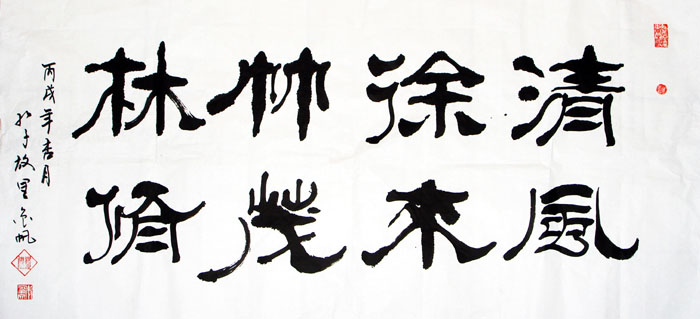 清風
徐來
竹茂
林脩
丙戌年杏月
孔子故里